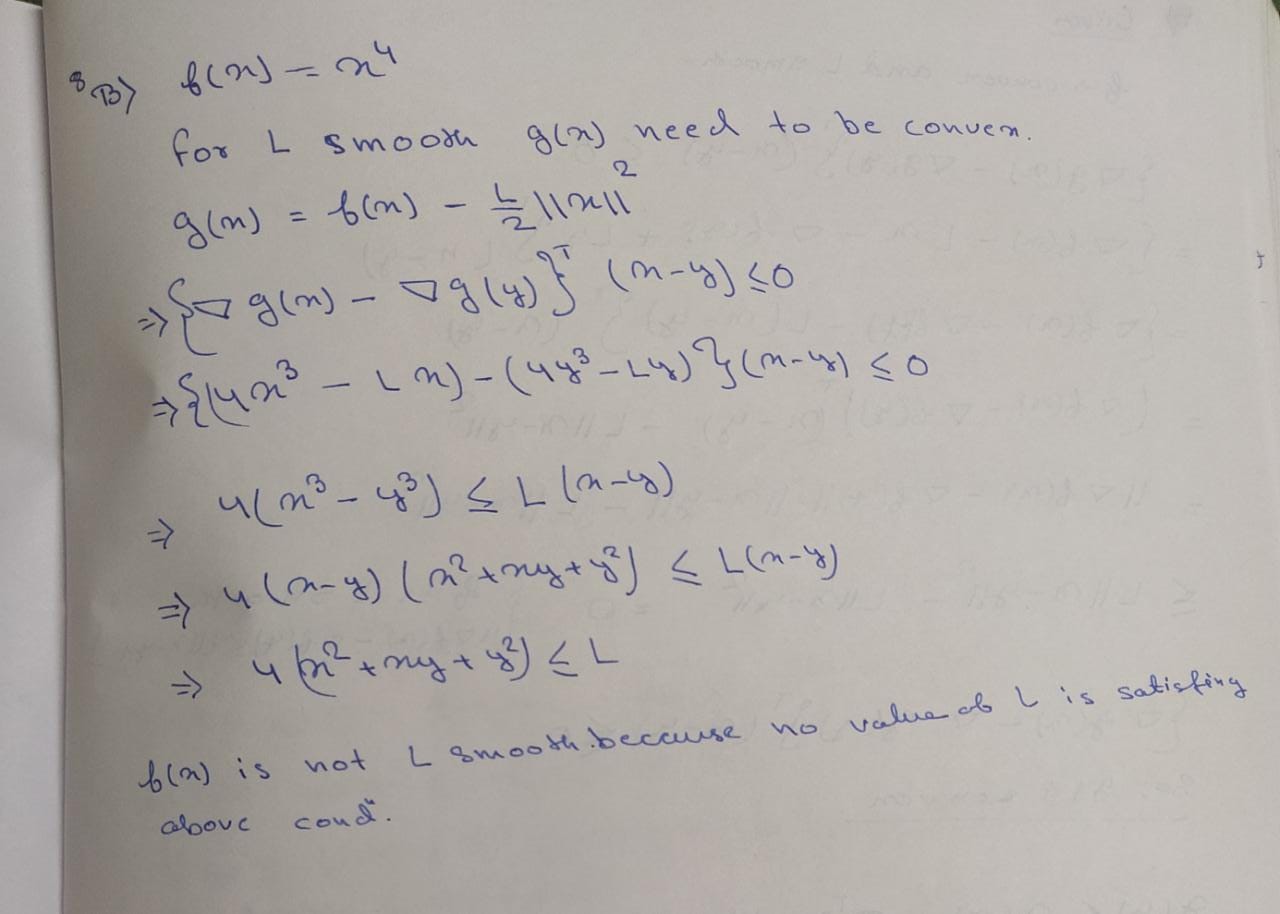 8 B) f(x) = x⁴
for L smooth g(x) need to be convex.
g(x) = f(x) - L/2 ||x||²
⇒ {∇g(x) - ∇g(y)}ᵀ (x-y) ≤ 0
⇒ {(4x³ - Lx) - (4y³ - Ly)}(x-y) ≤ 0
⇒ 4(x³ - y³) ≤ L(x-y)
⇒ 4(x-y)(x² + xy + y²) ≤ L(x-y)
⇒ 4(x² + xy + y²) ≤ L
f(x) is not L smooth because no value of L is satisfing
above condⁿ.